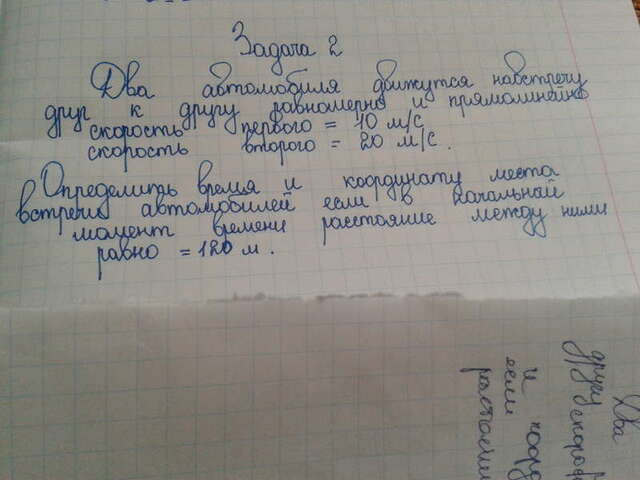 Задача 2
Два автомобиля движутся навстречу
друг к другу равномерно и прямолинейно
скорость первого = 10 м/с
скорость второго = 20 м/с.
Определить время и координату места
встречи автомобилей если в начальный
момент времени расстояние между ними
равно = 120 м.
Два
другу скорос
и коорд
если
расстояни